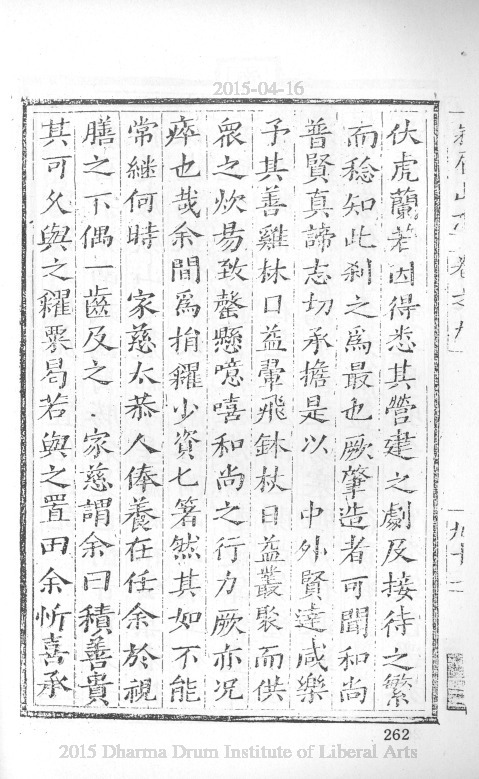 2015-04-16
伏虎蘭若因得悉其營建之劇及接待之繁
而稔知此剎之爲最也厥肇造者可聞和尚
普賢真諦志切承擔是以　中外賢達咸樂
予其善雞林口益翬飛鉢杖日益叢聚而供
衆之炊易致罄懸噫嘻和尚之行力厥亦况
瘁也哉余間爲捐糴少資七箸然其如不能
常繼何時　家慈太恭人俸養在任余於視
膳之下偶一齒及之．家慈謂余曰積善貴
其可久與之糴粟曷若與之置田余忻喜承
262
2015 Dharma Drum Institute of Liberal Arts